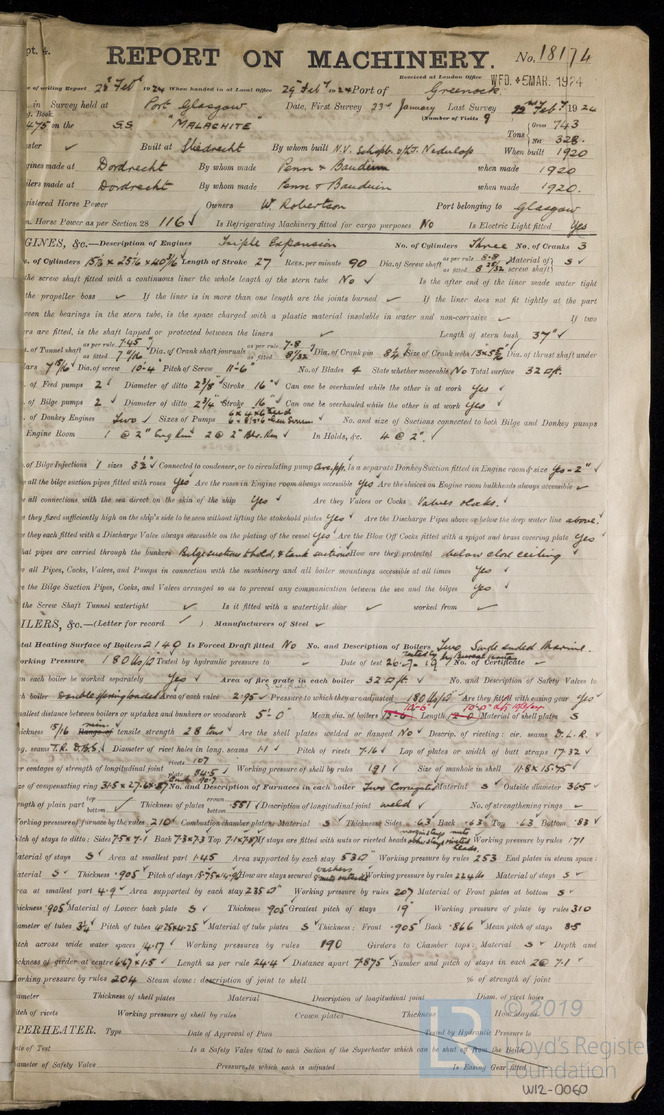 pt. 4.
REPORT ON MACHINERY. No. 18174
Received at London Office WED. 5 MAR. 1924
of writing Report 28 Feby 1924 When handed in at Local Office 29 Feby 1924 Port of Greenock
in Survey held at Port Glasgow Date, First Survey 23rd January Last Survey 22nd Feby 1924
Book. (Number of Visits 9
475 on the SS "MALACHITE" Tons { Gross 743
Net 328
Built at Sliedrecht By whom built N.V. When built 1920
Engines made at Dordrecht By whom made Penn & Bauduin when made 1920
Boilers made at Dordrecht By whom made Penn & Bauduin when made 1920.
Registered Horse Power Owners W. Robertson Port belonging to Glasgow
Horse Power as per Section 28 116 Is Refrigerating Machinery fitted for cargo purposes No Is Electric Light fitted Yes
GINES, &c.—Description of Engines Triple Expansion No. of Cylinders Three No. of Cranks 3
of Cylinders Length of Stroke 27 Revs. per minute 90 Dia. of Screw shaft as per rule 8.8 as fitted Material of screw shaft S
the screw shaft fitted with a continuous liner the whole length of the stern tube No Is the after end of the liner made water tight
the propeller boss If the liner is in more than one length are the joints burned If the liner does not fit tightly at the part
between the bearings in the stern tube, is the space charged with a plastic material insoluble in water and non-corrosive If two
liners are fitted, is the shaft lapped or protected between the liners Length of stern bush 37"
of Tunnel shaft as per rule 7.45 as fitted 7 11/16 Dia. of Crank shaft journals as per rule 7.8 as fitted Dia. of Crank pin Size of Crank webs Dia. of thrust shaft under
collars 7 15/16 Dia. of screw 10-4 Pitch of Screw 11-6" No. of Blades 4 State whether moveable No Total surface 32 □ft.
of Feed pumps 2 Diameter of ditto 2 3/8" Stroke 16" Can one be overhauled while the other is at work Yes
of Bilge pumps 2 Diameter of ditto 2 3/4" Stroke 16" Can one be overhauled while the other is at work Yes
of Donkey Engines Two Sizes of Pumps 6 x 4 x 6 feed No. and size of Suctions connected to both Bilge and Donkey pumps
Engine Room 1 @ 2" 2 @ 2" In Holds, &c. 4 @ 2".
of Bilge Injections 1 sizes 3 1/2 Connected to condenser, or to circulating pump Is a separate Donkey Suction fitted in Engine room & size Yes - 2"
all the bilge suction pipes fitted with roses Yes Are the roses in Engine room always accessible Yes Are the sluices on Engine room bulkheads always accessible
all connections with the sea direct on the skin of the ship Yes Are they Valves or Cocks Valves & Cocks.
they fixed sufficiently high on the ship's side to be seen without lifting the stokehold plates Yes Are the Discharge Pipes above or below the deep water line above.
they each fitted with a Discharge Valve always accessible on the plating of the vessel Yes Are the Blow Off Cocks fitted with a spigot and brass covering plate Yes
hat pipes are carried through the bunkers Bilge suctions to hold, & tank suctions How are they protected below close ceiling
all Pipes, Cocks, Valves, and Pumps in connection with the machinery and all boiler mountings accessible at all times Yes
the Bilge Suction Pipes, Cocks, and Valves arranged so as to prevent any communication between the sea and the bilges Yes
the Screw Shaft Tunnel watertight Is it fitted with a watertight door worked from
ILERS, &c.—(Letter for record ) Manufacturers of Steel
Total Heating Surface of Boilers 2140 Is Forced Draft fitted No No. and Description of Boilers Two Single ended Marine.
Working Pressure 180 lbs/□" Tested by hydraulic pressure to Date of test 26.9.19 No. of Certificate
an each boiler be worked separately Yes Area of fire grate in each boiler 32 □ft No. and Description of Safety Valves to
each boiler Double Spring loaded Area of each valve 2.95 Pressure to which they are adjusted 180 lbs/□" Are they fitted with easing gear Yes
smallest distance between boilers or uptakes and bunkers or woodwork 5'-0" Mean dia. of boilers Length Material of shell plates S
Thickness 15/16 tensile strength 28 tons Are the shell plates welded or flanged No Descrip. of riveting: cir. seams D.L.R.
seams T.R. D.B.S. Diameter of rivet holes in long. seams 1.1 Pitch of rivets 7.16 Lap of plates or width of butt straps 17.32
er centages of strength of longitudinal joint rivets 107 plate 84.5 Working pressure of shell by rules 191 Size of manhole in shell 11.8 x 15.75
of compensating ring No. and Description of Furnaces in each boiler Two Corrugated Material S Outside diameter 36.5
length of plain part top bottom Thickness of plates crown bottom .551 Description of longitudinal joint weld No. of strengthening rings
Working pressure of furnace by the rules 210 Combustion chamber plates: Material S Thickness: Sides .63 Back .63 Top .63 Bottom .83
Pitch of stays to ditto: Sides 7.5 x 7.1 Back 7.3 x 7.3 Top If stays are fitted with nuts or riveted heads Working pressure by rules 171
Material of stays S Area at smallest part 1.45 Area supported by each stay 53 □" Working pressure by rules 253 End plates in steam space:
Material S Thickness .905 Pitch of stays How are stays secured Working pressure by rules 224 lbs Material of stays S
Area at smallest part 4.9 Area supported by each stay 235 □" Working pressure by rules 207 Material of Front plates at bottom S
Thickness .905 Material of Lower back plate S Thickness .905 Greatest pitch of stays 19" Working pressure of plate by rules 310
Diameter of tubes 3 1/4 Pitch of tubes 4.25 x 4.25 Material of tube plates S Thickness: Front .905 Back .866 Mean pitch of stays 8.5
Pitch across wide water spaces 14.17 Working pressures by rules 190 Girders to Chamber tops: Material S Depth and
thickness of girder at centre Length as per rule 24.4 Distance apart 7.875 Number and pitch of stays in each 2 @ 7.1
Working pressure by rules 204 Steam dome: description of joint to shell % of strength of joint
Diameter Thickness of shell plates Material Description of longitudinal joint Diam. of rivet holes
Pitch of rivets Working pressure of shell by rules Crown plates Thickness How stayed
PERHEATER. Type Date of Approval of Plan Tested by Hydraulic Pressure to
Date of Test Is a Safety Valve fitted to each Section of the Superheater which can be shut off from the Boiler
Diameter of Safety Valve Pressure to which each is adjusted Is Easing Gear fitted
© 2019
LR Lloyd's Register
Foundation
W12-0060